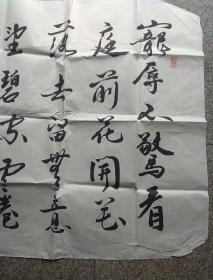 寵辱不驚看
庭前花開花
落去留無意
望碧空雲卷